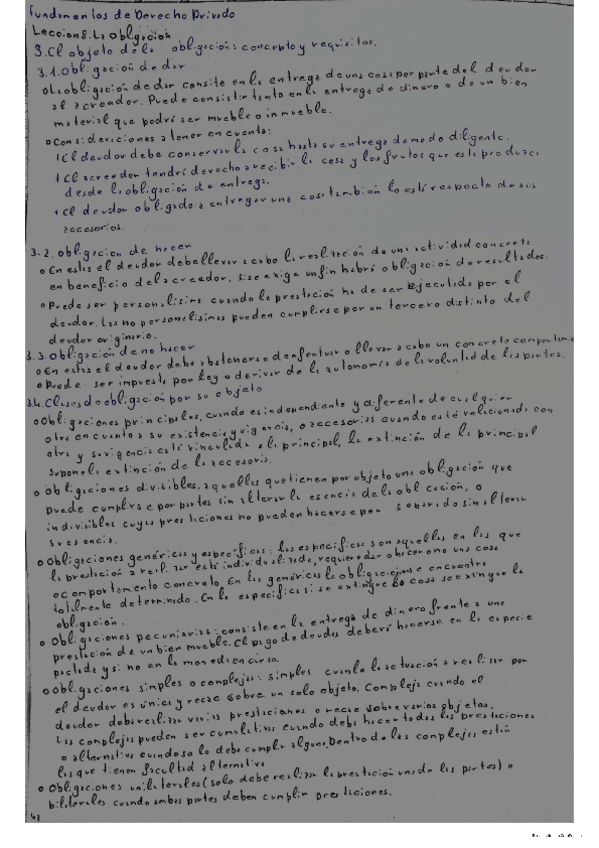 Fundamentos de Derecho Privado
Leccion 8. La Obligación
3. El objeto de la obligación: concepto y requisitos.
3.1. Obligación de dar
La obligación de dar consite en la entrega de una cosa por parte del deudor
al acreedor. Puede consistir tanto en la entrega de dinero o de un bien
material que podrá ser mueble o inmueble.
Consideraciones a tener en cuenta:
El deudor debe conservar la cosa hasta su entrega de modo diligente.
El acreedor tendrá derecho a recibir la cosa y los frutos que esta produzca,
desde la obligación de entrega.
El deudor obligado a entregar una cosa también lo está respecto de sus
accesorios.
3.2. Obligacion de hacer
En estas el deudor debe llevar a cabo la realización de una actividad concreta
en beneficio del acreedor, si se exige un fin habrá obligación de resultados.
Puede ser personalísima cuando la prestación ha de ser ejecutada por el
deudor. Las no personalísimas pueden cumplirse por un tercero distinto del
deudor originario.
3.3. Obligación de no hacer
En estas el deudor debe abstenerse de efectuar o llevar a cabo un concreto comportamiento
Puede ser impuesta por ley o derivar de la autonomía de la voluntad de las partes.
3.4. Clases de obligación por su objeto
Obligaciones principales, cuando es independiente y diferente de cualquier
otra en cuanto a su existencia y vigencia, o accesorias cuando esté relacionada con
otra y su vigencia esté vinculada a la principal, la extinción de la principal
supone la extinción de la accesoria.
Obligaciones divisibles, aquellas que tienen por objeto una obligación que
puede cumplirse por partes sin alterar la esencia de la obligación, o
indivisibles cuyas prestaciones no pueden hacerse por separado sin alterar
su esencia.
Obligaciones genéricas y específicas: las específicas son aquellas en las que
la prestación a realizar está individualizada, requiere dar o hacer o no una cosa
o comportamiento concreto. En las genéricas la obligación se encuentra
totalmente determinado. En las específicas si se extingue la cosa se extingue la
obligación.
Obligaciones pecuniarias: consiste en la entrega de dinero frente a una
prestación de un bien mueble. El pago de deudas deberá hacerse en la especie
pactada y si no en la moneda en curso.
Obligaciones simples o complejas: simples cuando la actuación a realizar por
el deudor es única y recae sobre un solo objeto. Compleja cuando el
deudor debe realizar varias prestaciones o recae sobre varios objetos.
Las complejas pueden ser cumulativas cuando debe hacer todas las prestaciones
o alternativa cuando solo debe cumplir alguna. Dentro de las complejas están
las que tienen facultad alternativa
Obligaciones unilaterales (solo debe realizar la prestación una de las partes) o
bilaterales cuando ambas partes deben cumplir prestaciones.